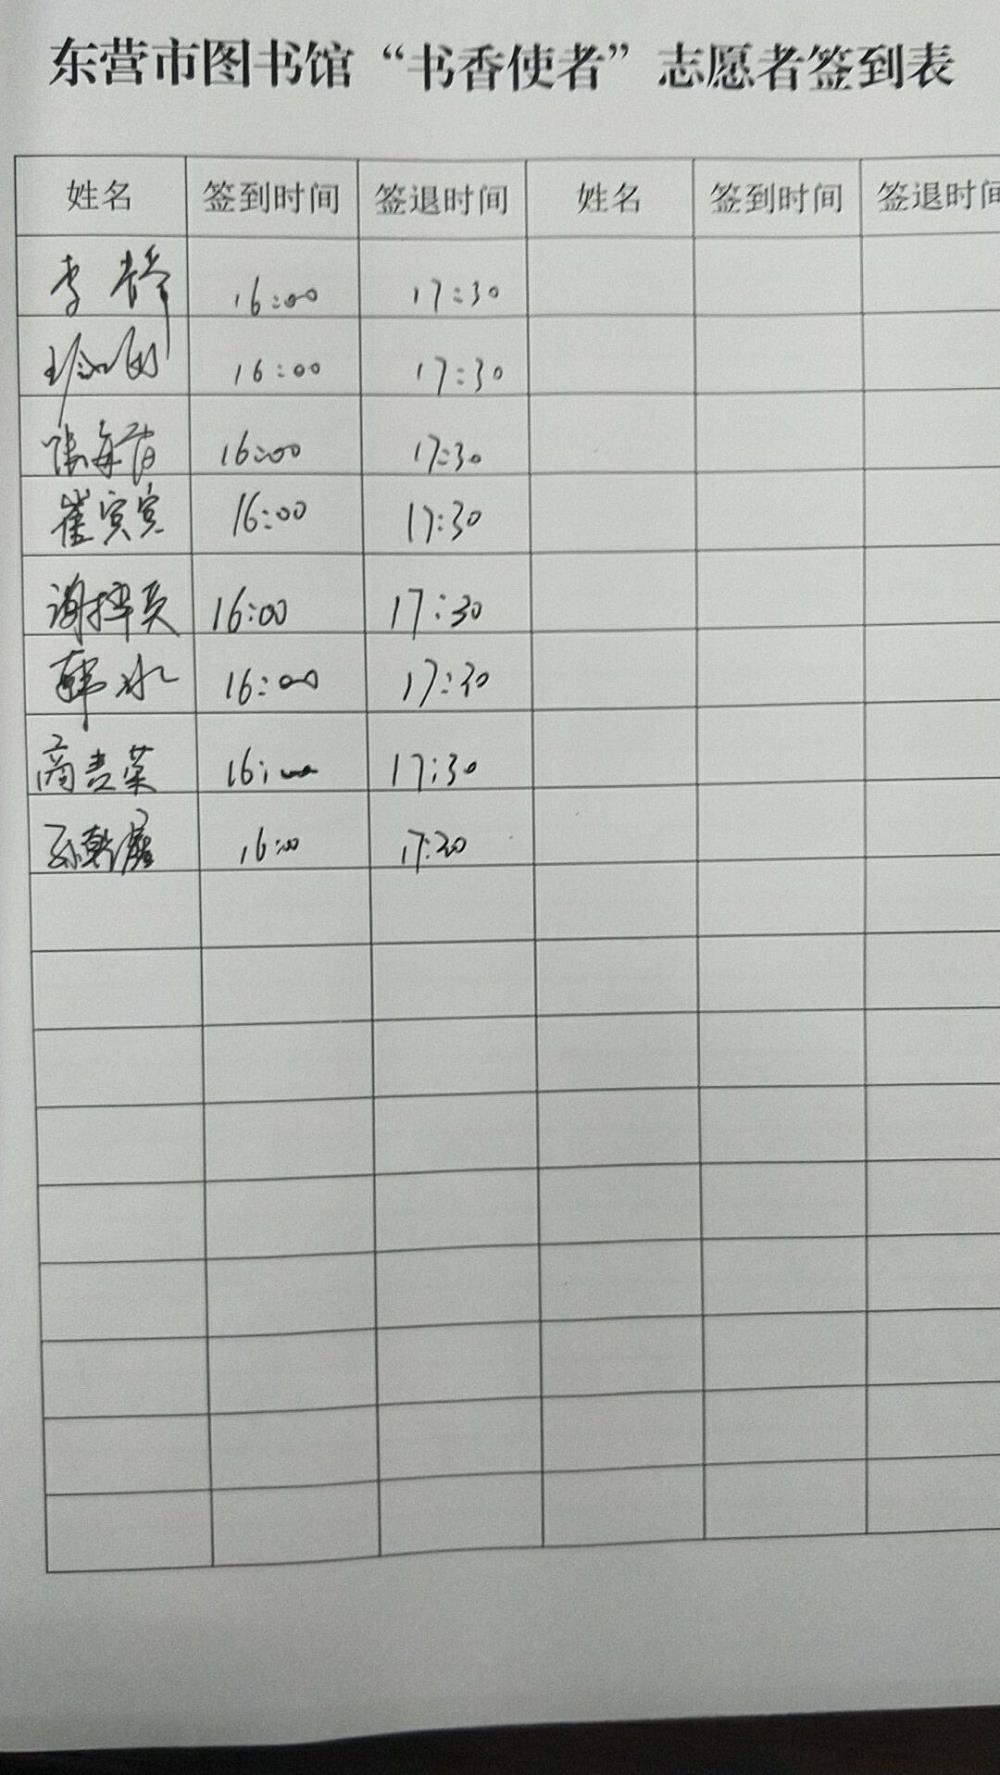 东营市图书馆“书香使者”志愿者签到表
姓名 签到时间 签退时间 姓名 签到时间 签退时间
李 16:00 17:30
16:00 17:30
张 16:00 17:30
崔宾宾 16:00 17:30
谢 16:00 17:30
韩冰 16:00 17:30
商 菜 16:00 17:30
孙乾 16:00 17:30